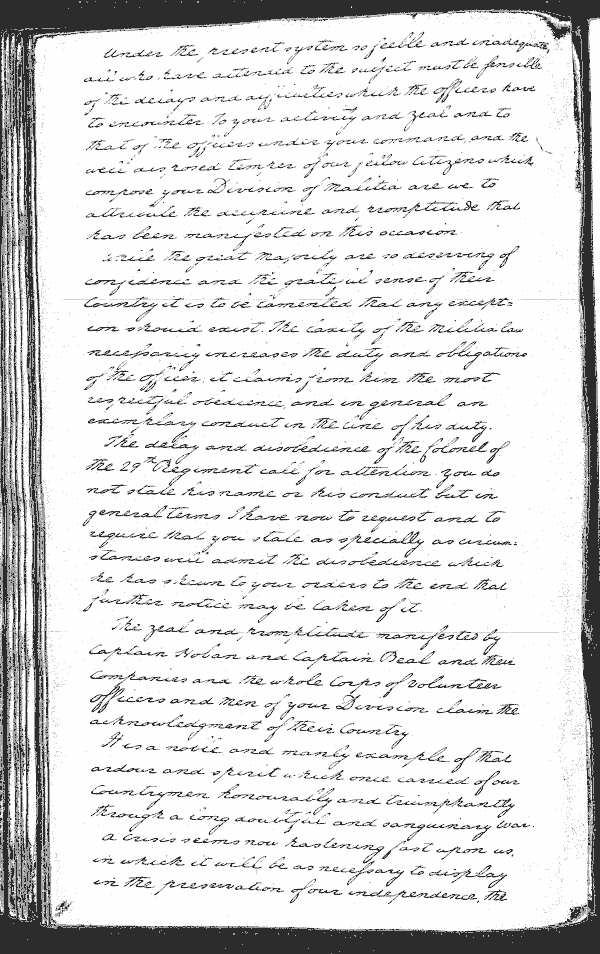 Under the present system so feeble and inadequate,
all who have attended to the subject must be sensible
of the delays and difficulties which the officers have
to encounter. To your activity and zeal and to
that of the officers under your command, and the
well disposed temper of our fellow Citizens which
compose your Division of Malitia are we to
attribute the dicipline and promptitude that
has been manifested on this occasion.
While the great Majority are so deserving of
confidence and the grateful sense of their
Country it is to be lamented that any except=
ion should exist. The laxity of the militia law
necessarily increases the duty and obligations
of the officer: it claims from him the most
respectful obedience, and in general an
exemplary conduct in the line of his duty.
The delay and disobedience of the Colonel of
the 29th Regiment call for attention. you do
not state his name or his conduct but in
general terms. I have now to request and to
require that you state as specially as circum:
stances will admit the disobedience which
he has shewn to your orders to the end that
further notice may be taken of it.
The zeal and promptitude manifested by
Captain Hoban and Captain Beal and their
Companies and the whole Corps of volunteer
officers and men of your Division claim the
acknowledgment of their Country
It is a noble and manly example of that
ardour and spirit which once carried of our
Countrymen honourably and triumphantly
through a long doubtful and sanguinary War.
A crisis seems now hastening fast upon us,
in which it will be as necessary to display
in the preservation of our independence, the